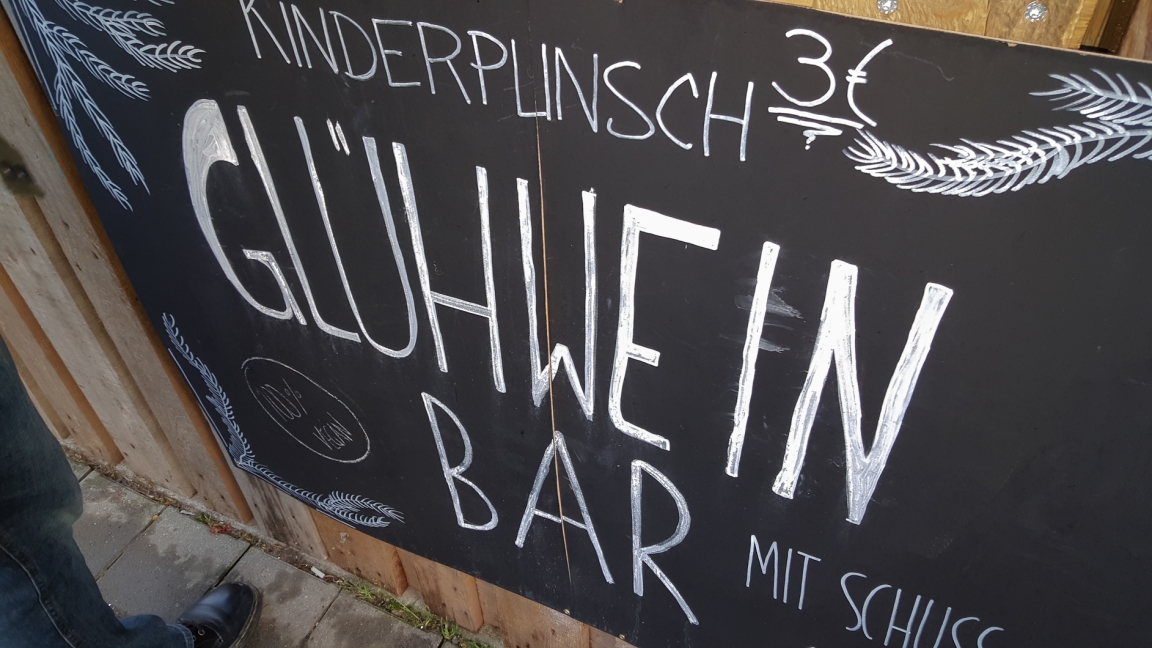 KINDERPUNSCH 3€
GLÜHWEIN
100%
VEGAN
BAR
MIT SCHUSS